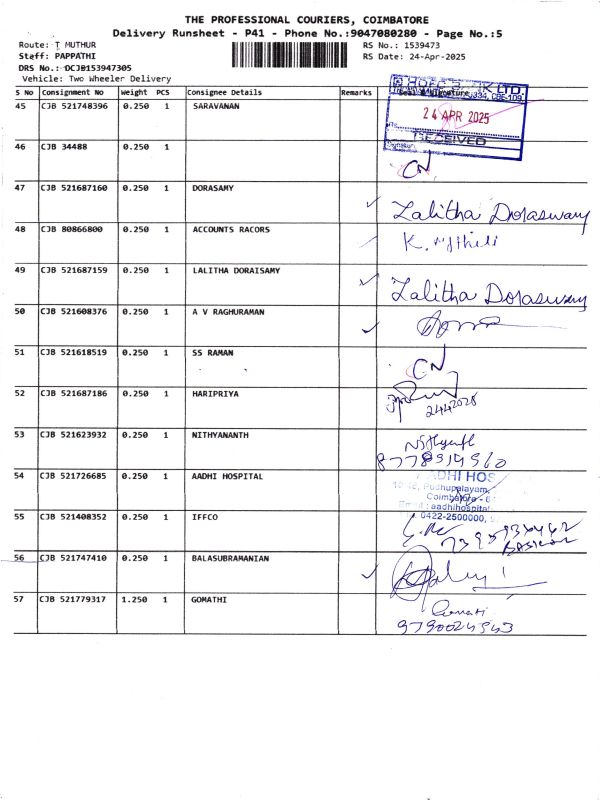 THE PROFESSIONAL COURIERS, COIMBATORE
Delivery Runsheet - P41 - Phone No.:9047080280 - Page No.:5
Route: T MUTHUR
RS No.: 1539473
Staff: PAPPATHI
RS Date: 24-Apr-2025
DRS No.: DCJB153947305
Vehicle: Two Wheeler Delivery
S No Consignment No Weight PCS Consignee Details Remarks Seal & Signature
45 CJB 521748396 0.250 1 SARAVANAN
24 APR 2025
RECEIVED
46 CJB 34488 0.250 1
CN
47 CJB 521687160 0.250 1 DORASAMY
Lalitha Doraswamy
48 CJB 80866800 0.250 1 ACCOUNTS RACORS
49 CJB 521687159 0.250 1 LALITHA DORAISAMY
Lalitha Doraswamy
50 CJB 521608376 0.250 1 A V RAGHURAMAN
51 CJB 521618519 0.250 1 SS RAMAN
CN
52 CJB 521687186 0.250 1 HARIPRIYA
53 CJB 521623932 0.250 1 NITHYANANTH
54 CJB 521726685 0.250 1 AADHI HOSPITAL
AADHI HOS
Pudhupalayam,
Coimbatore - 6
Email : aadhihospital
0422-2500000,
55 CJB 521408352 0.250 1 IFFCO
56 CJB 521747410 0.250 1 BALASUBRAMANIAN
57 CJB 521779317 1.250 1 GOMATHI
9790024543